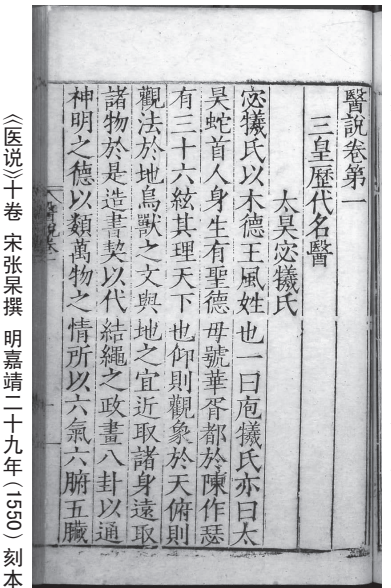 醫說卷第一
三皇歷代名醫
太昊宓犧氏
宓犧氏以木德王風姓也一曰庖犧氏亦曰太
昊蛇首人身生有聖德母號華胥都於陳作瑟
有三十六絃其理天下也仰則觀象於天俯則
觀法於地鳥獸之文與地之宜近取諸身遠取
諸物於是造書契以代結繩之政畫八卦以通
神明之德以類萬物之情所以六氣六腑五臟
《医说》十卷 宋张杲撰 明嘉靖二十九年（1550）刻本